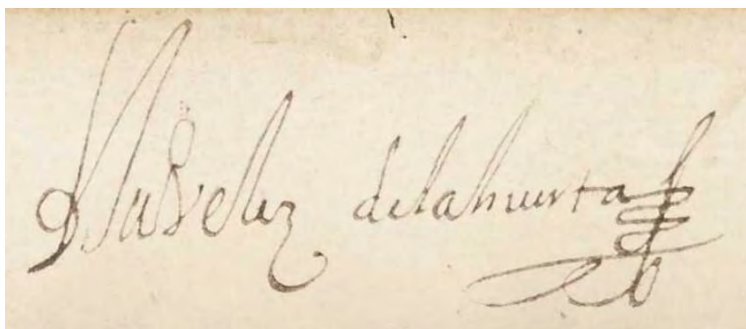 Velez delahuerta